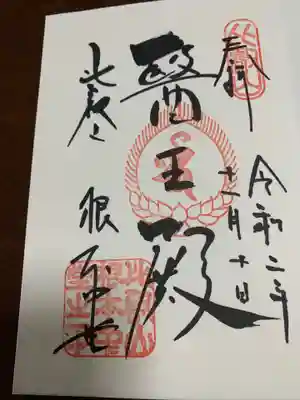 奉拝
令和二年
十一月十日
醫王殿
比叡山
根本中堂